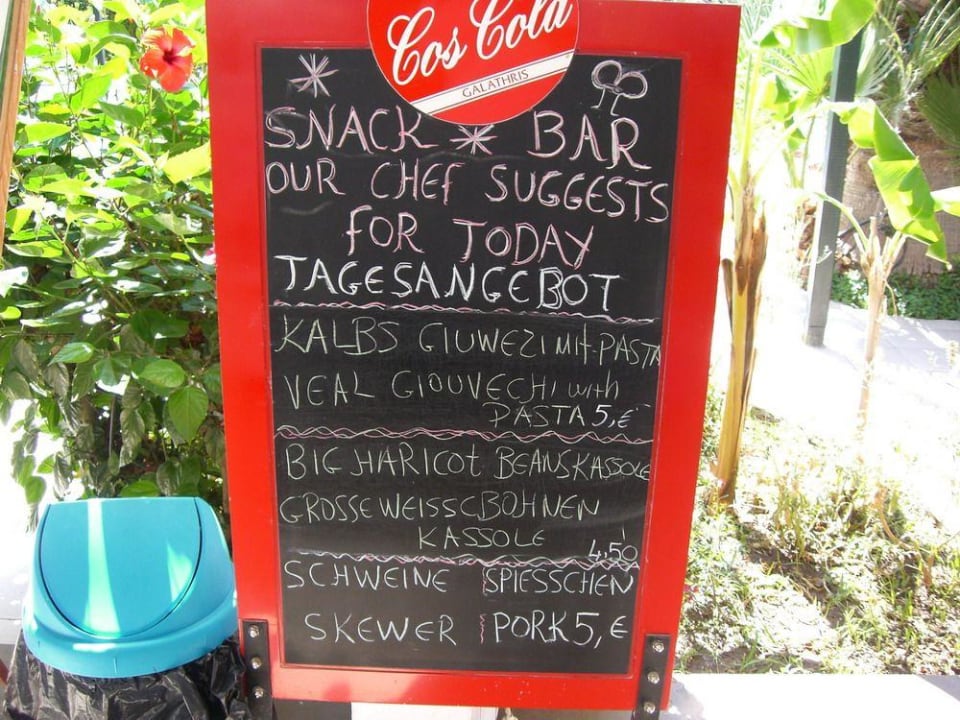 Cos Cola
GALATHRIS
SNACK * BAR
OUR CHEF SUGGESTS
FOR TODAY
TAGESANGEBOT
KALBS GIUWEZI mit PASTA
VEAL GIOUVECHI with
PASTA 5,€
BIG HARICOT BEANS KASSOLE
GROSSE WEISSE BOHNEN
KASSOLE 4,50
SCHWEINE SPIESSCHEN
SKEWER PORK 5,€